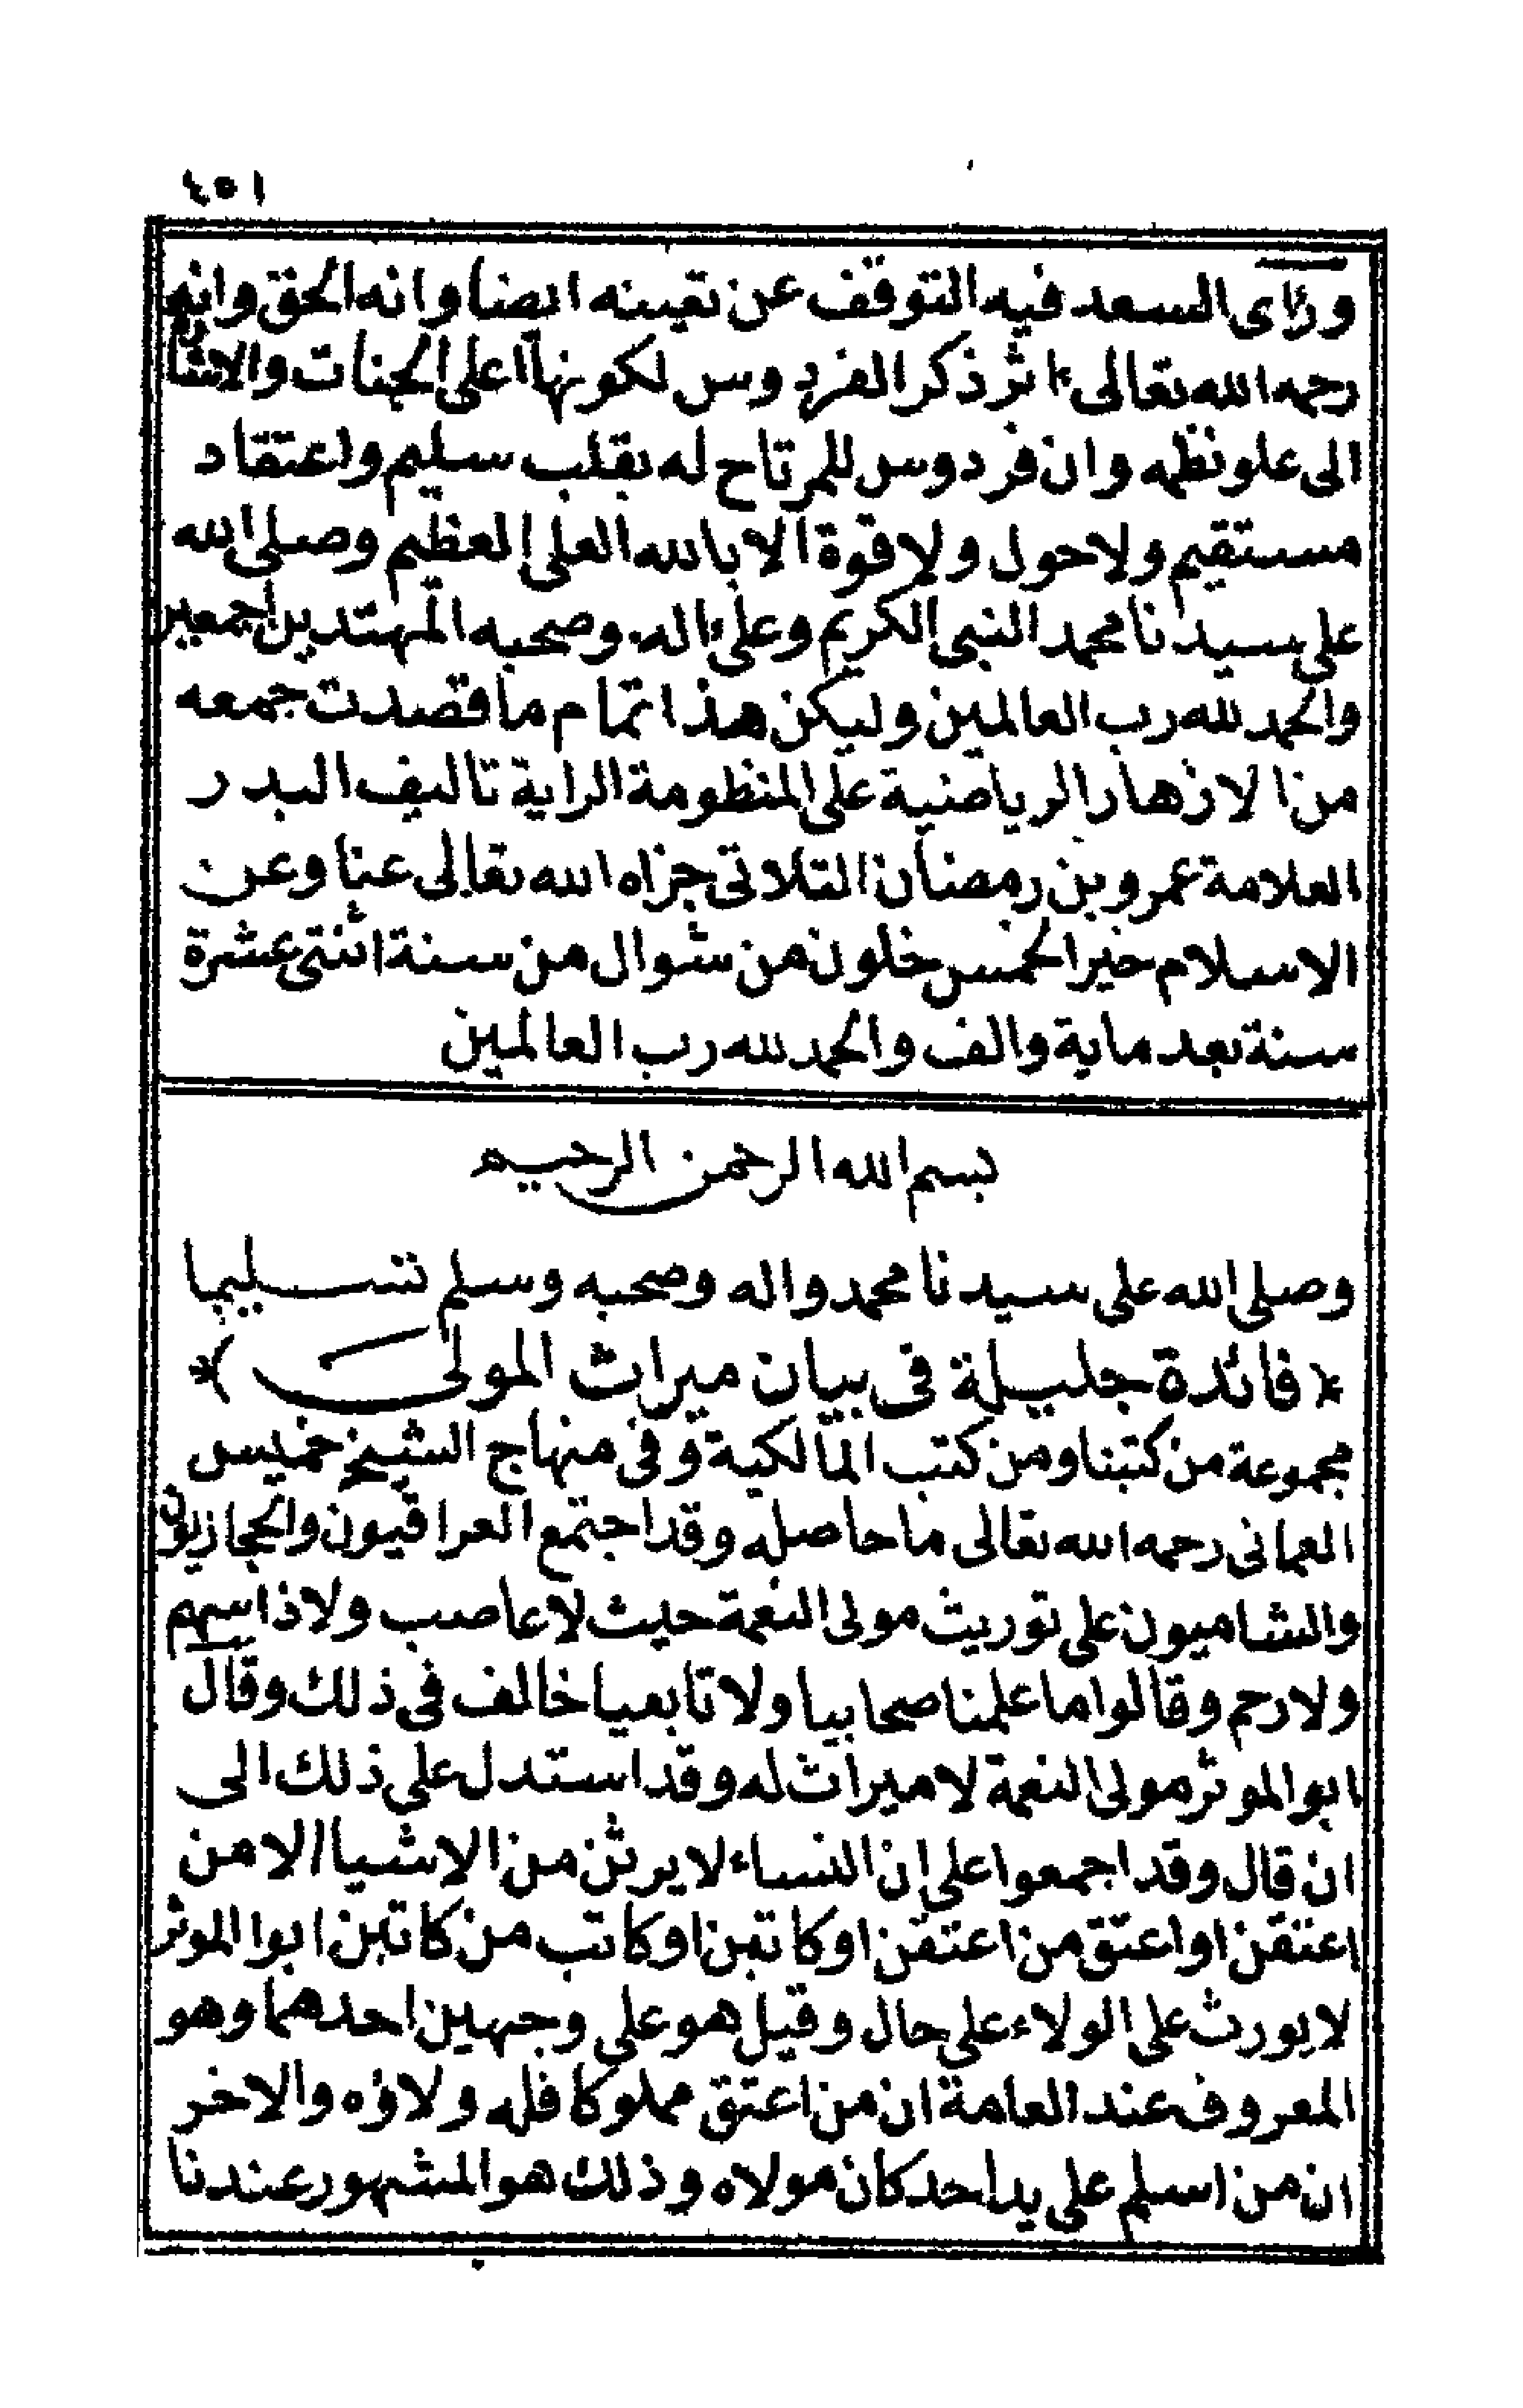 ٤٥١
ورءاى السعد فيه التوقف عن تعيينه ايضا وانه الحق وانه
رحمه الله تعالى ءاثر ذكر الفردوس لكونها اعلى الجنات والاشارة
الى علو نظمه وان فردوس للمرتاح له بقلب سليم واعتقاد
مستقيم ولا حول ولا قوة الا بالله العلى العظيم وصلى الله
على سيدنا محمد النبى الكريم وعلى ءاله وصحبه المهتدين اجمعين
والحمد لله رب العالمين وليكن هذا تمام ما قصدت جمعه
من الازهار الرياضية على المنظومة الرايية تاليف البدر
العلامة عمرو بن رمضان التلاتى جزاه الله تعالى عنا وعن
الاسلام خيرا لخمس خلون من شوال من سنة اثنتى عشرة
سنة بعد ماية والف والحمد لله رب العالمين
بسم الله الرحمن الرحيم
وصلى الله على سيدنا محمد واله وصحبه وسلم تسليما
* فائدة جليلة فى بيان ميراث المولى *)
مجموعة من كتبنا ومن كتب المالكية وفى منهاج الشيخ خميس
العمانى رحمه الله تعالى ما حاصله وقد اجتمع العراقيون والحجازيون
والشاميون على توريث مولى النعمة حيث لا عاصب ولا ذا سهم
ولا رحم وقالوا ما علمنا صحابيا ولا تابعيا خالف فى ذلك وقال
ابوا الموثر مولى النعمة لا ميراث له وقد استدل على ذلك الى
ان قال وقد اجمعوا على ان النساء لا يرثن من الاشيا الا من
اعتقن او اعتق من اعتقن او كاتبن او كاتب من كاتبن ابوا الموثر
لا يورث على الولاء على حال وقيل هو على وجهين احدهما وهو
المعروف عند العامة ان من اعتق مملوكا فله ولاؤه والاخر
ان من اسلم على يد احد كان مولاه وذلك هو المشهور عندنا